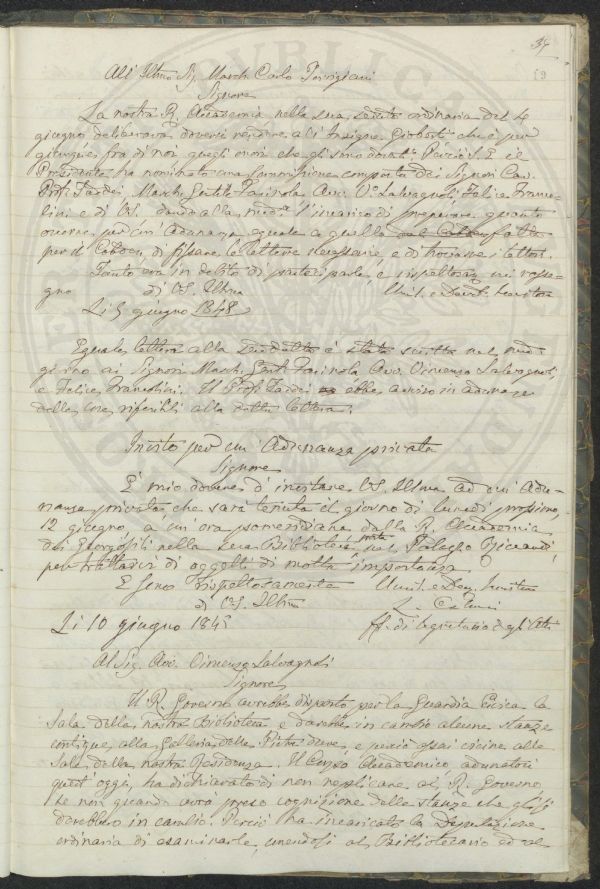 37
All' Illmo Sig. March. Carlo Torrigiani
Signore
La nostra R. Accademia nella sua seduta ordinaria del 4
giugno deliberava doversi rendere all'insigne Gioberti che è per
giungere fra di noi quegli onori che gli sono dovuti. Perciò S. E. il
Presidente ha nominato una commissione composta dei Signori Cav.
Prof. Taddei, March. Gentile Farinola, Avv. Vo. Salvagnoli, Felice France-
lini e di VS. dando alla med.a l'incarico di preparare quanto
occorre per un'adunanza eguale a quella
per il Cobden, di fissare le lettere necessarie, e di trovarne i lettori.
Tanto era in debito di parteciparle, e rispettoso mi rasse-
gno di VS. Illma
Li 5 giugno 1848
Eguale lettera alla suddetta è stata scritta nel med.
giorno ai Signori March. Gent. Farinola, Avv. Vincenzo Salvagnoli,
e Felice Francolini. Il Prof. Taddei ebbe avviso in adunanza
delle cose riferibili alla detta lettera.
Invito per un'Adunanza privata
Signore
È mio dovere d'invitare VS. Illma ad un'Adu-
nanza privata, che sarà tenuta il giorno di Lunedì prossimo,
12 giugno, a un'ora pomeridiana dalla R. Accademia
dei Georgofili nella sua Biblioteca posta nel Palazzo Riccardi,
per trattarvi di oggetti di molta importanza.
E sono rispettosamente
di VS. Illma
Li 10 giugno 1848
ff. di Segretario degli Atti
Al Sig. Avv. Vincenzo Salvagnoli
Signore
Il R. Governo avrebbe disposto per la Guardia Civica la
Sala della nostra Biblioteca e darebbe in cambio alcune stanze
contigue alla Galleria delle Pietre dure, e perciò assai vicine alle
Sale della nostra Residenza. Il Corpo Accademico adunatosi
quest'oggi, ha dichiarato di non replicare al R. Governo,
se non quando avrà preso cognizione delle stanze che gli si
darebbero in cambio. Perciò ha incaricato la Deputazione
ordinaria di esaminarle, unendosi al Bibliotecario ed al